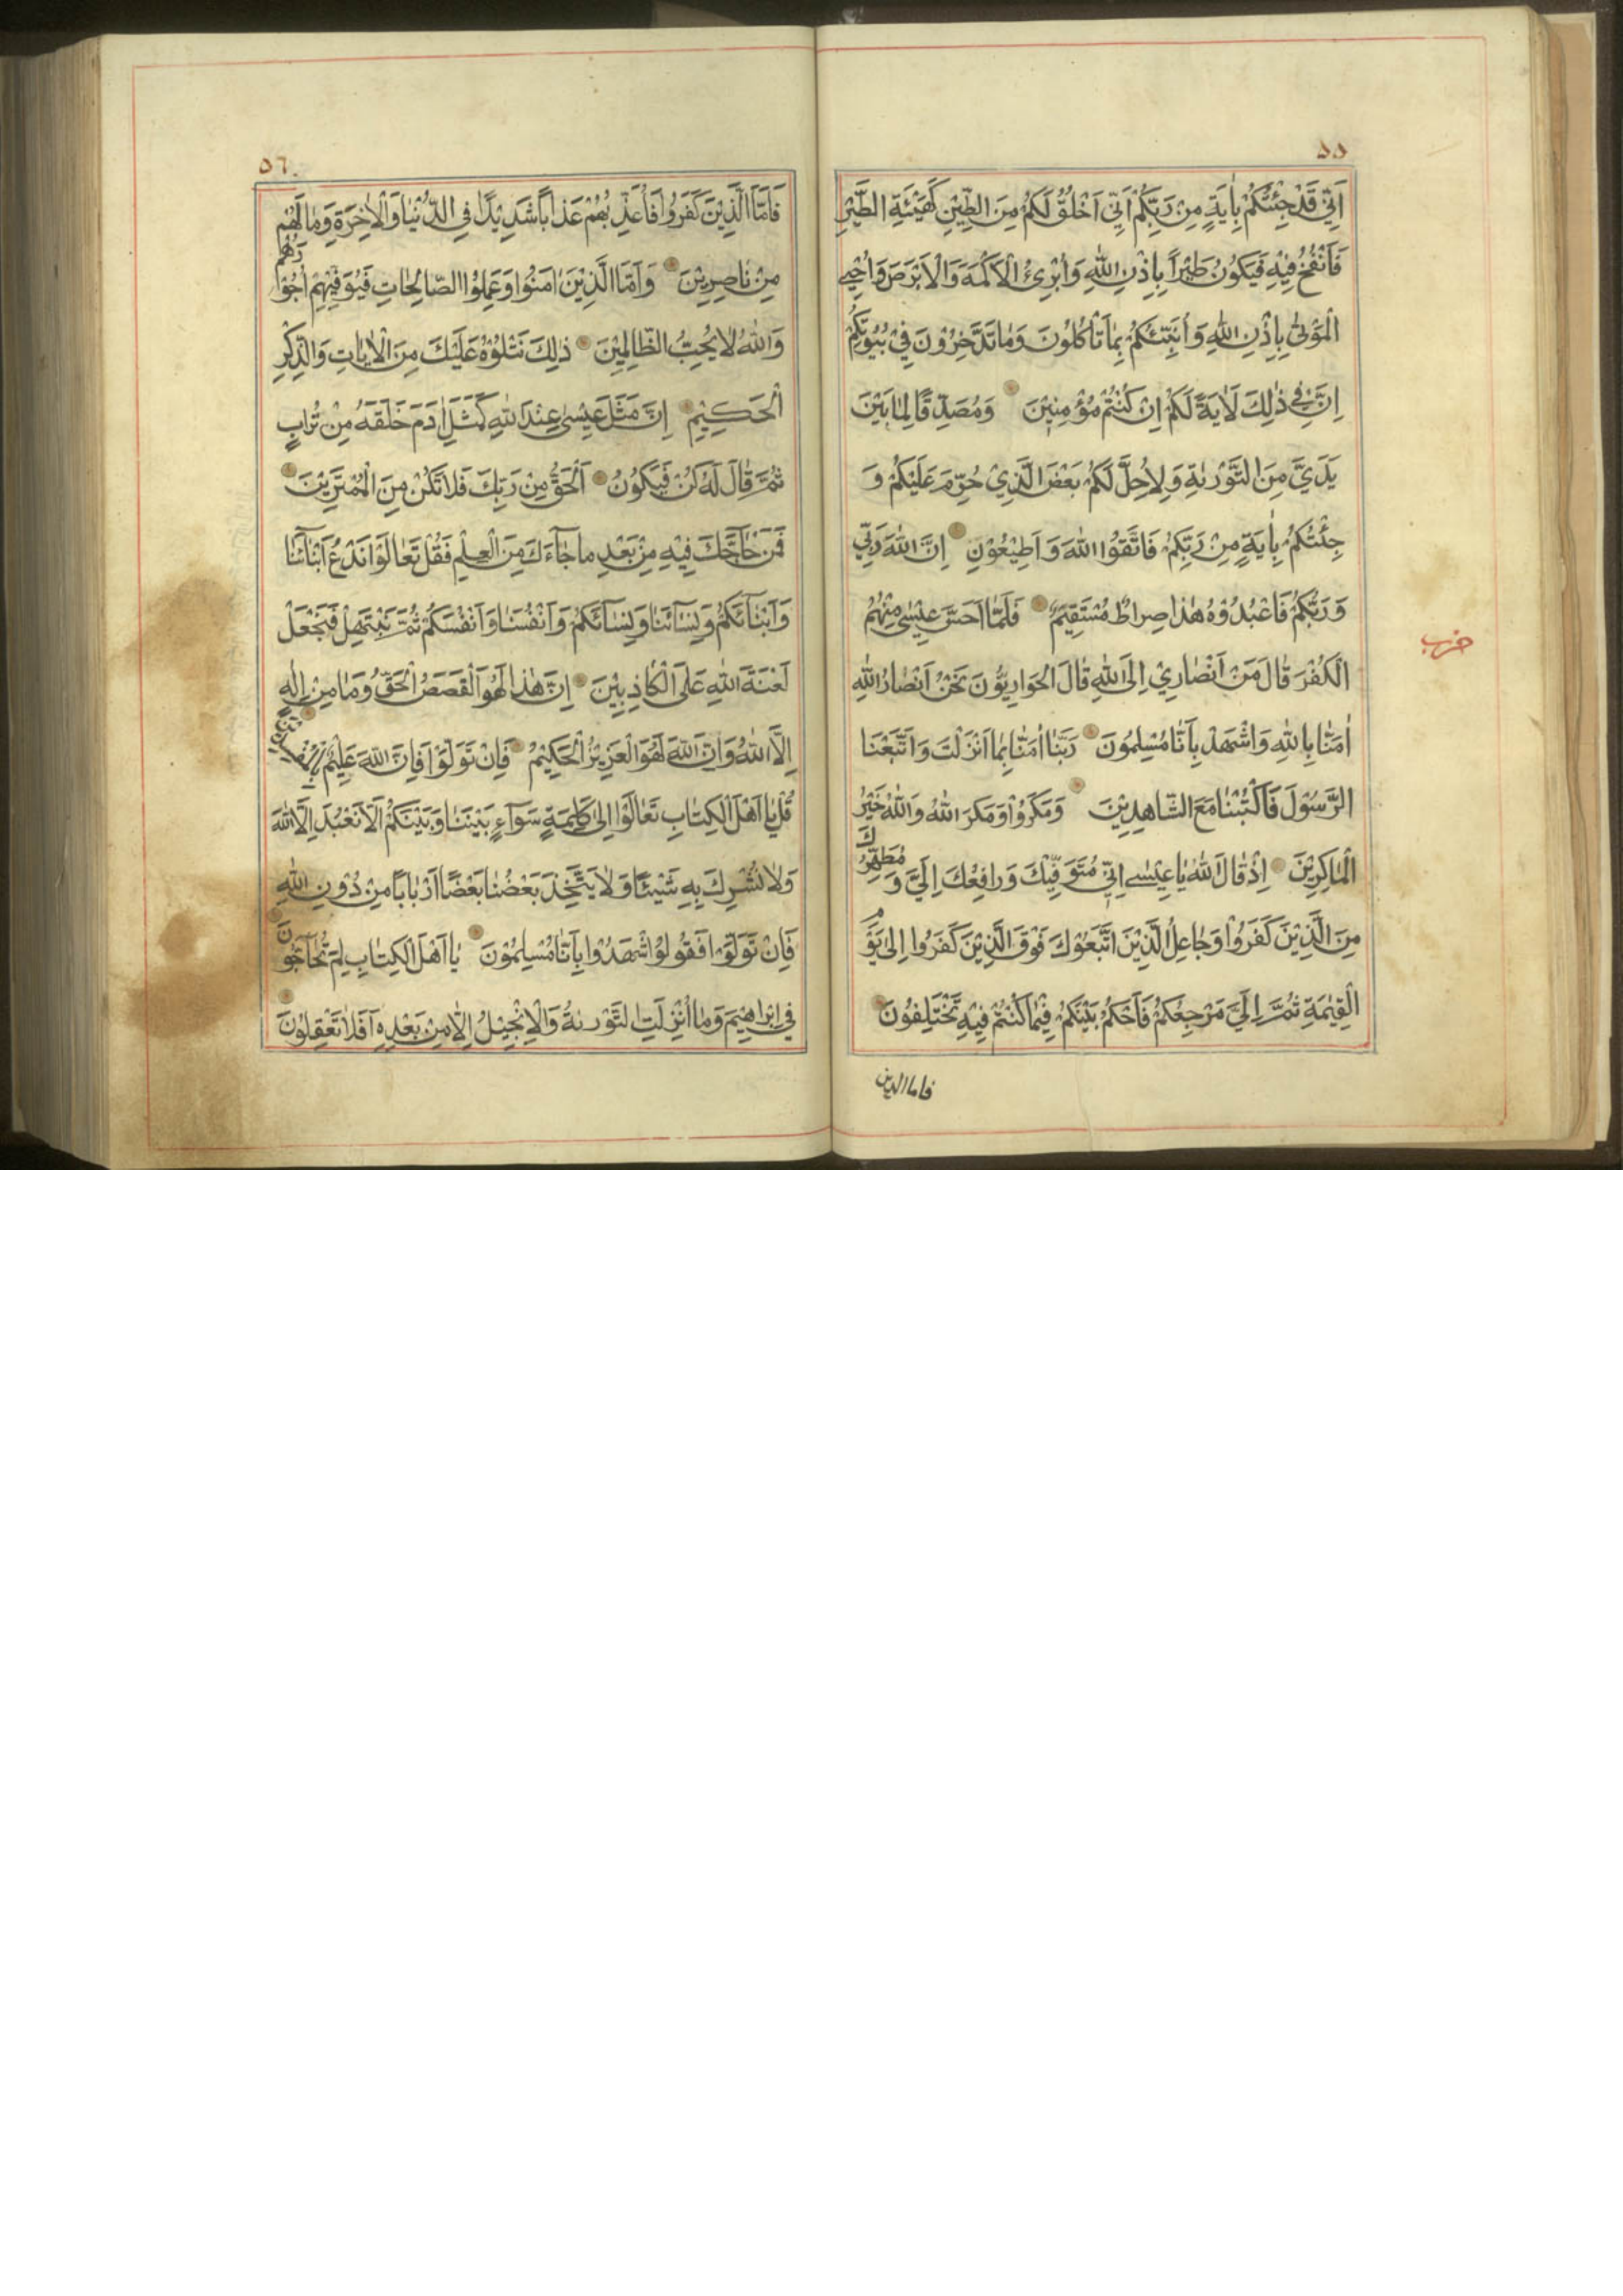 ٥٥
اَنِّي قَدْ جِئْتُكُمْ بِاٰيَةٍ مِنْ رَبِّكُمْ اَنِّي اَخْلُقُ لَكُمْ مِنَ الطِّيْنِ كَهَيْئَةِ الطَّيْرِ
فَاَنْفُخُ فِيْهِ فَيَكُوْنُ طَيْرًا بِاِذْنِ اللّٰهِ وَاُبْرِئُ الْاَكْمَهَ وَالْاَبْرَصَ وَاُحْيِي
الْمَوْتٰى بِاِذْنِ اللّٰهِ وَاُنَبِّئُكُمْ بِمَا تَاْكُلُوْنَ وَمَا تَدَّخِرُوْنَ فِيْ بُيُوْتِكُمْ
اِنَّ فِي ذٰلِكَ لَاٰيَةً لَكُمْ اِنْ كُنْتُمْ مُؤْمِنِيْنَ وَمُصَدِّقًا لِمَا بَيْنَ
يَدَيَّ مِنَ التَّوْرٰيةِ وَلِاُحِلَّ لَكُمْ بَعْضَ الَّذِيْ حُرِّمَ عَلَيْكُمْ وَ
جِئْتُكُمْ بِاٰيَةٍ مِنْ رَبِّكُمْ فَاتَّقُوا اللّٰهَ وَاَطِيْعُوْنِ اِنَّ اللّٰهَ رَبِّي
وَرَبُّكُمْ فَاعْبُدُوْهُ هٰذَا صِرَاطٌ مُسْتَقِيْمٌ فَلَمَّا اَحَسَّ عِيْسٰى مِنْهُمُ
حزب
الْكُفْرَ قَالَ مَنْ اَنْصَارِيْ اِلَى اللّٰهِ قَالَ الْحَوَارِيُّوْنَ نَحْنُ اَنْصَارُ اللّٰهِ
اٰمَنَّا بِاللّٰهِ وَاشْهَدْ بِاَنَّا مُسْلِمُوْنَ رَبَّنَا اٰمَنَّا بِمَا اَنْزَلْتَ وَاتَّبَعْنَا
الرَّسُوْلَ فَاكْتُبْنَا مَعَ الشَّاهِدِيْنَ وَمَكَرُوْا وَمَكَرَ اللّٰهُ وَاللّٰهُ خَيْرُ
الْمَاكِرِيْنَ اِذْ قَالَ اللّٰهُ يَا عِيْسٰى اِنِّي مُتَوَفِّيْكَ وَرَافِعُكَ اِلَيَّ وَمُطَهِّرُكَ
مِنَ الَّذِيْنَ كَفَرُوْا وَجَاعِلُ الَّذِيْنَ اتَّبَعُوْكَ فَوْقَ الَّذِيْنَ كَفَرُوا اِلٰى يَوْمِ
الْقِيٰمَةِ ثُمَّ اِلَيَّ مَرْجِعُكُمْ فَاَحْكُمُ بَيْنَكُمْ فِيْمَا كُنْتُمْ فِيْهِ تَخْتَلِفُوْنَ
فاما الذين
٥٦
فَاَمَّا الَّذِيْنَ كَفَرُوْا فَاُعَذِّبُهُمْ عَذَابًا شَدِيْدًا فِي الدُّنْيَا وَالْاٰخِرَةِ وَمَا لَهُمْ
مِنْ نَاصِرِيْنَ وَاَمَّا الَّذِيْنَ اٰمَنُوْا وَعَمِلُوا الصَّالِحَاتِ فَيُوَفِّيْهِمْ اُجُوْرَهُمْ
وَاللّٰهُ لَا يُحِبُّ الظَّالِمِيْنَ ذٰلِكَ نَتْلُوْهُ عَلَيْكَ مِنَ الْاٰيَاتِ وَالذِّكْرِ
الْحَكِيْمِ اِنَّ مَثَلَ عِيْسٰى عِنْدَ اللّٰهِ كَمَثَلِ اٰدَمَ خَلَقَهُ مِنْ تُرَابٍ
ثُمَّ قَالَ لَهُ كُنْ فَيَكُوْنُ اَلْحَقُّ مِنْ رَبِّكَ فَلَا تَكُنْ مِنَ الْمُمْتَرِيْنَ
فَمَنْ حَاجَّكَ فِيْهِ مِنْ بَعْدِ مَا جَاءَكَ مِنَ الْعِلْمِ فَقُلْ تَعَالَوْا نَدْعُ اَبْنَاءَنَا
وَاَبْنَاءَكُمْ وَنِسَاءَنَا وَنِسَاءَكُمْ وَاَنْفُسَنَا وَاَنْفُسَكُمْ ثُمَّ نَبْتَهِلْ فَنَجْعَلْ
لَعْنَةَ اللّٰهِ عَلَى الْكَاذِبِيْنَ اِنَّ هٰذَا لَهُوَ الْقَصَصُ الْحَقُّ وَمَا مِنْ اِلٰهٍ
اِلَّا اللّٰهُ وَاِنَّ اللّٰهَ لَهُوَ الْعَزِيْزُ الْحَكِيْمُ فَاِنْ تَوَلَّوْا فَاِنَّ اللّٰهَ عَلِيْمٌ بِالْمُفْسِدِيْنَ
قُلْ يَا اَهْلَ الْكِتَابِ تَعَالَوْا اِلٰى كَلِمَةٍ سَوَاءٍ بَيْنَنَا وَبَيْنَكُمْ اَلَّا نَعْبُدَ اِلَّا اللّٰهَ
وَلَا نُشْرِكَ بِهِ شَيْئًا وَلَا يَتَّخِذَ بَعْضُنَا بَعْضًا اَرْبَابًا مِنْ دُوْنِ اللّٰهِ
فَاِنْ تَوَلَّوْا فَقُوْلُوا اشْهَدُوْا بِاَنَّا مُسْلِمُوْنَ يَا اَهْلَ الْكِتَابِ لِمَ تُحَاجُّوْنَ
فِي اِبْرَاهِيْمَ وَمَا اُنْزِلَتِ التَّوْرٰيةُ وَالْاِنْجِيْلُ اِلَّا مِنْ بَعْدِهِ اَفَلَا تَعْقِلُوْنَ